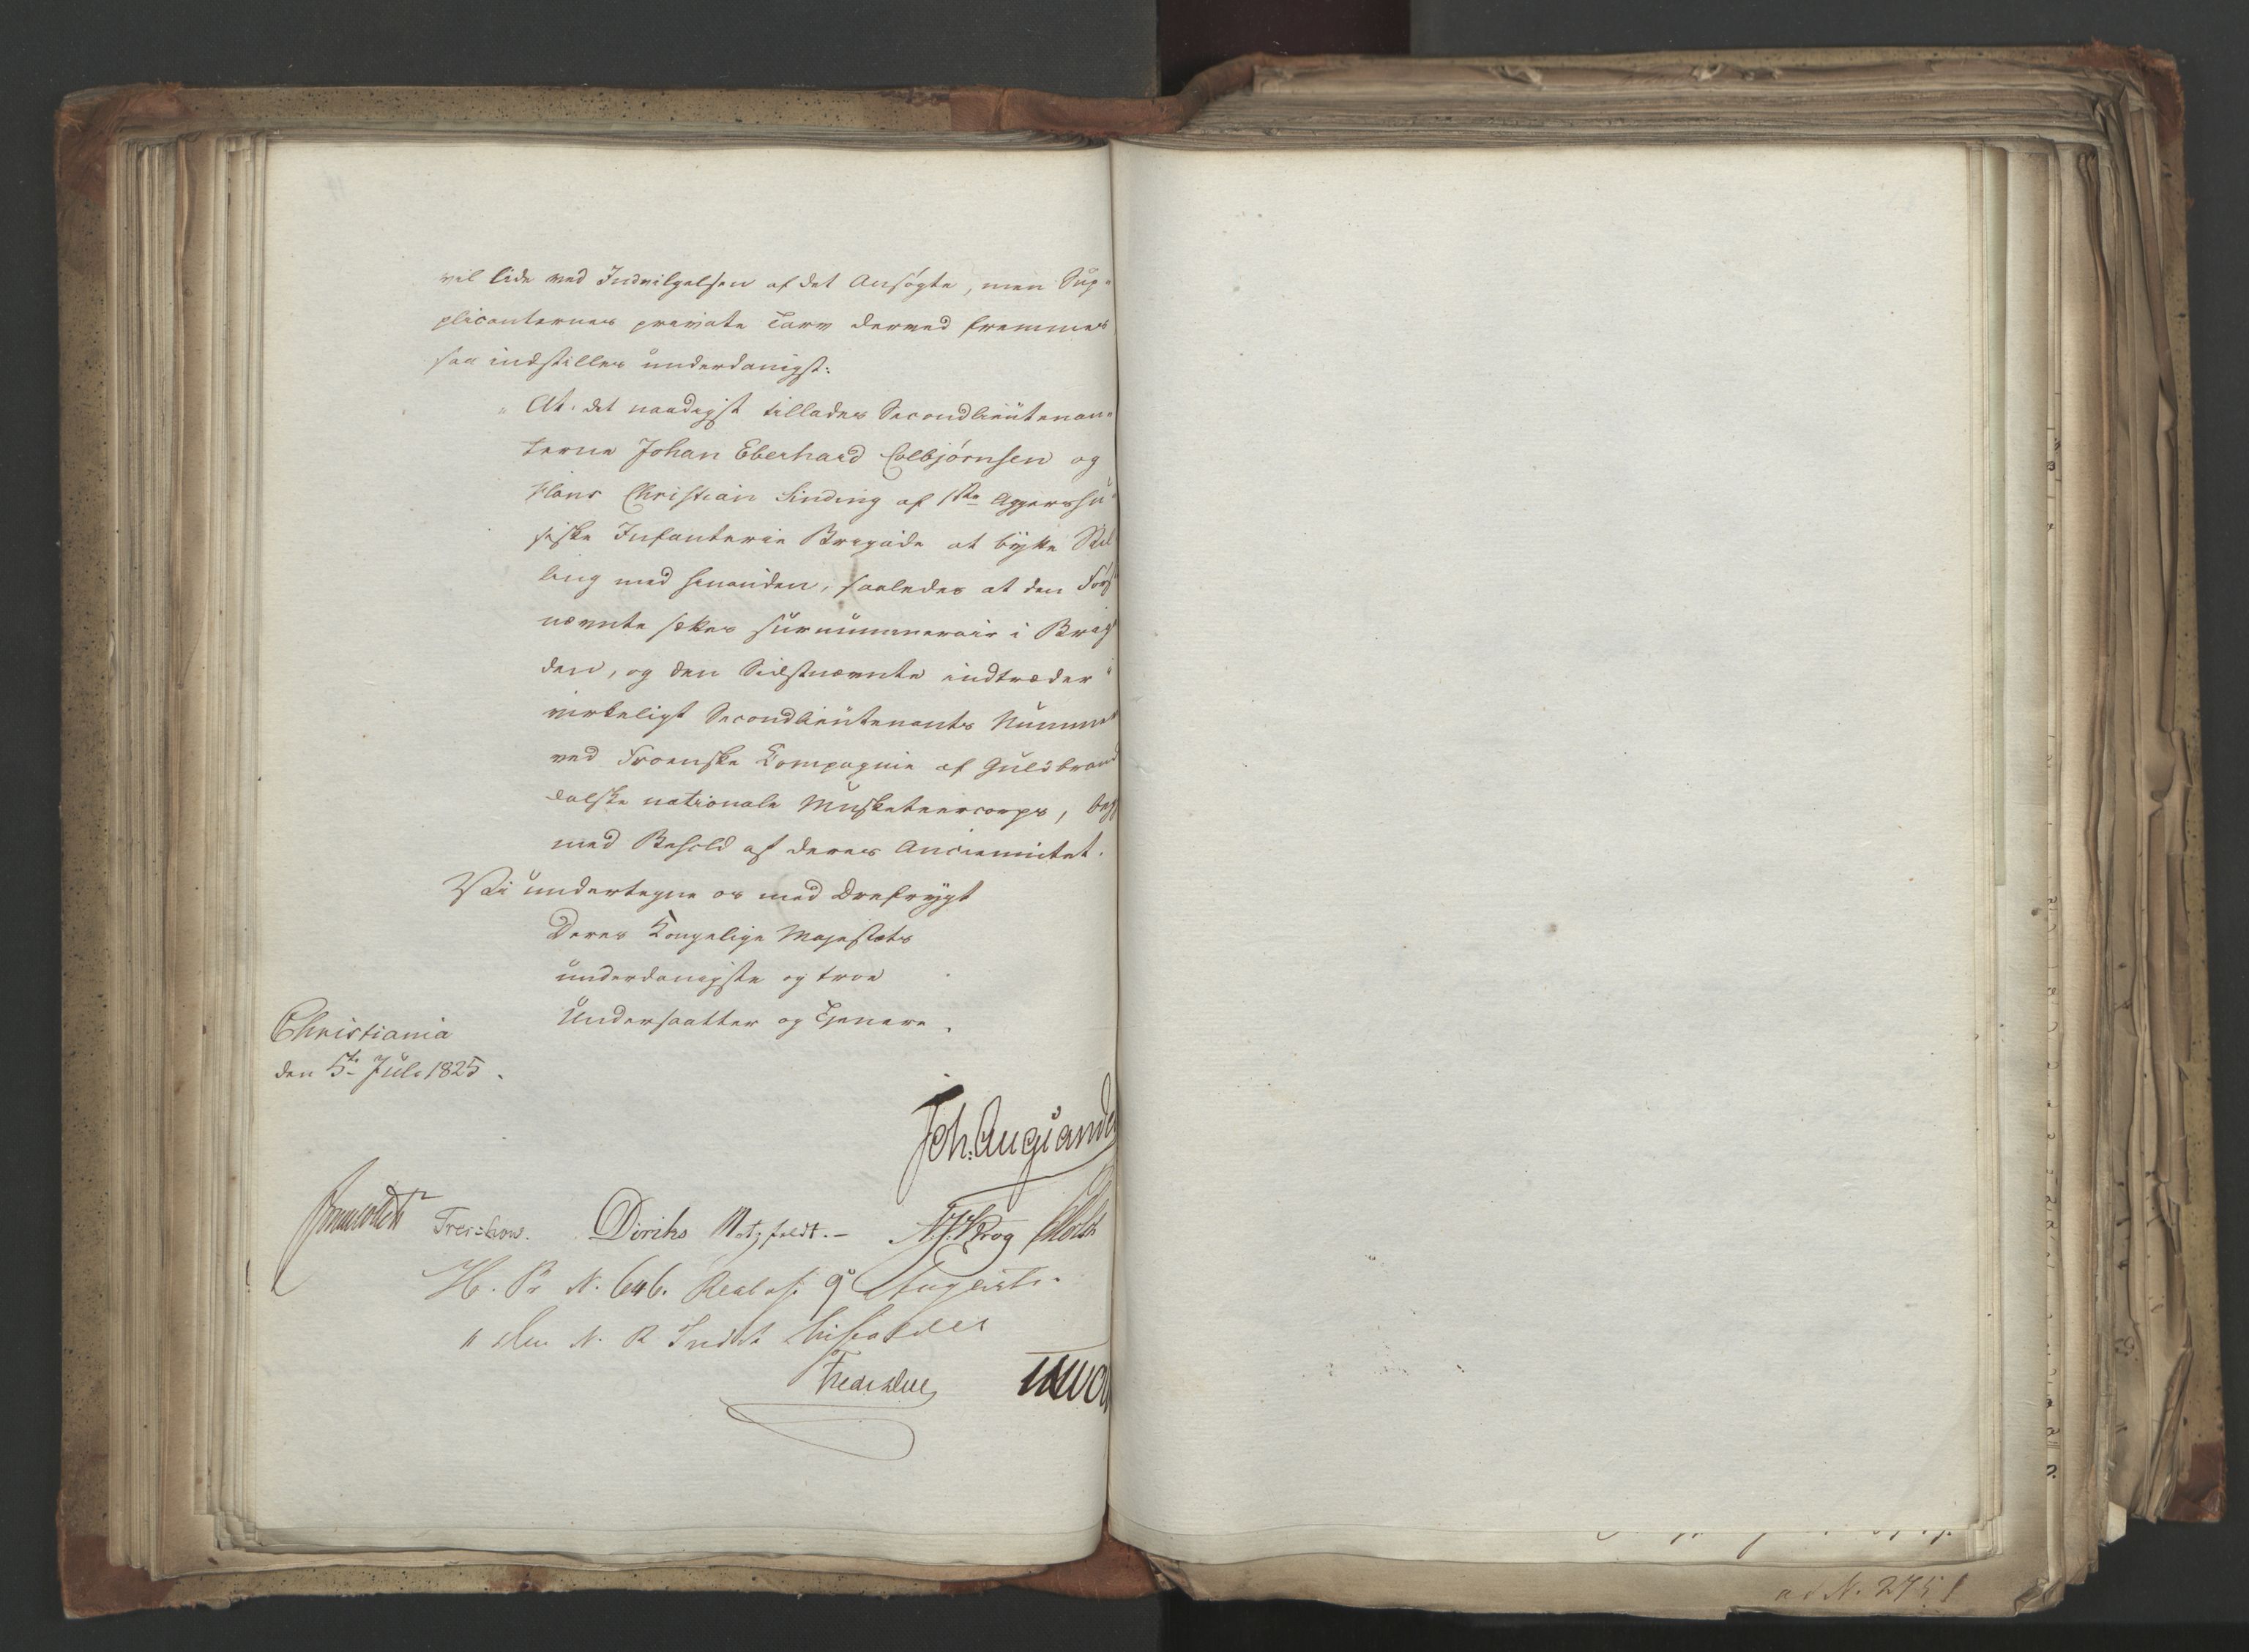 vel lide ved Indvilgelsen af det Ansøgte, men Sup-
plicanternes private Tarv derved fremmes
saa indstilles underdanigst:
At det naadigst tillades Secondlieutenan-
terne Johan Eberhard Colbjørnsen og
Hans Christian Sinding af 1ste Aggershu-
siske Infanterie Brigade at bytte Stil
ling med hinanden, saaledes at den Først
nævnte sættes surnummerair i Briga
den, og den Sidstnævnte indtræder i
virkeligt Secondlieutenants Nummer
ved Froenske Compagnie af Guldbrand
dalske nationale Musketeercorps, Begge
med Behold af deres Anciennitet.
Vi undertegne os med Ærefrygt
Deres Kongelige Majestæts
underdanigste og troe
Undersaatter og Tjenere.
Christiania
den 5te Juli 1825.
Joh. Aug. Sande
Collett Treschow. Diriks Motzfeldt.- Krog Holst
H. Pr N. 646. Resol. af 9 Augusti
Fredr Due
ad N. 2751